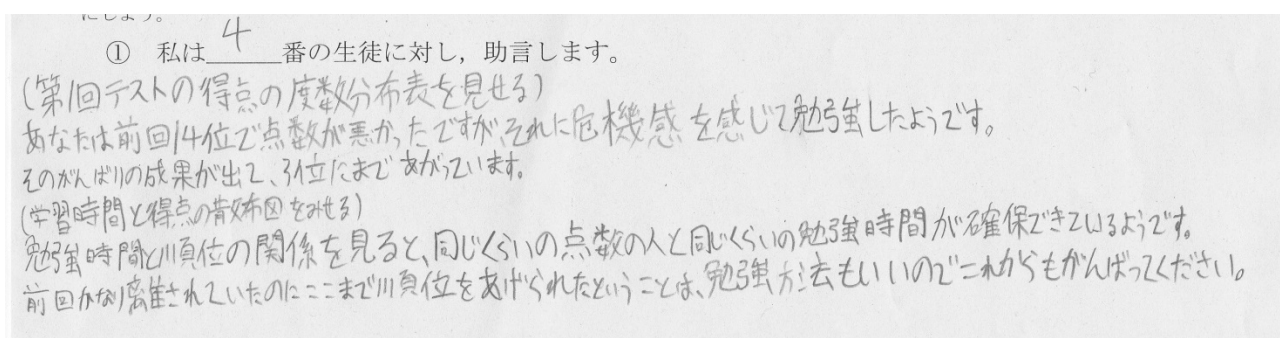 にしよう。
① 私は 4 番の生徒に対し，助言します。
(第1回テストの得点の度数分布表を見せる)
あなたは前回14位で点数が悪かったですが、それに危機感を感じて勉強したようです。
そのがんばりの成果が出て、3位にまであがっています。
(学習時間と得点の散布図をみせる)
勉強時間と順位の関係を見ると、同じくらいの点数の人と同じくらいの勉強時間が確保できているようです。
前回かなり離されていたのにここまで順位をあげられたということは、勉強方法もいいのでこれからもがんばってください。